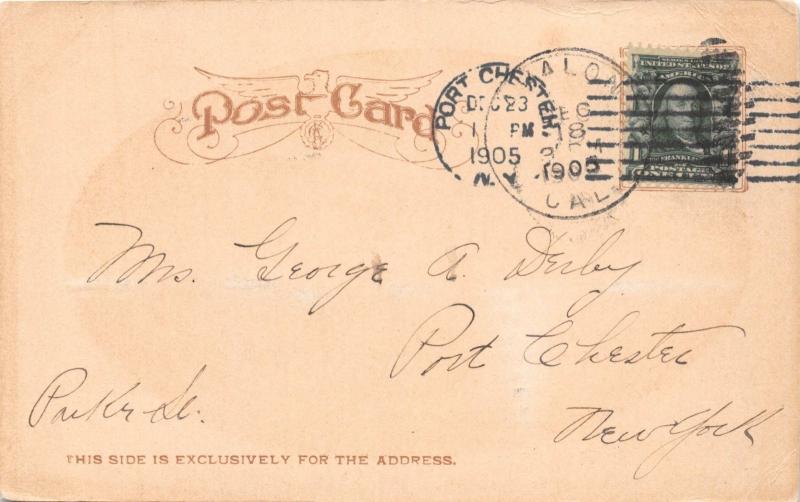 Post Card
PORT CHESTER,
DEC 23
1 PM
1905
N.Y.
AVALON
DEC
18
1905
CAL
SERIES 1902
UNITED STATES OF
AMERICA
FRANKLIN
POSTAGE
ONE CENT
Mrs. George A. Derby
Port Chester
Parker St.
New York
THIS SIDE IS EXCLUSIVELY FOR THE ADDRESS.